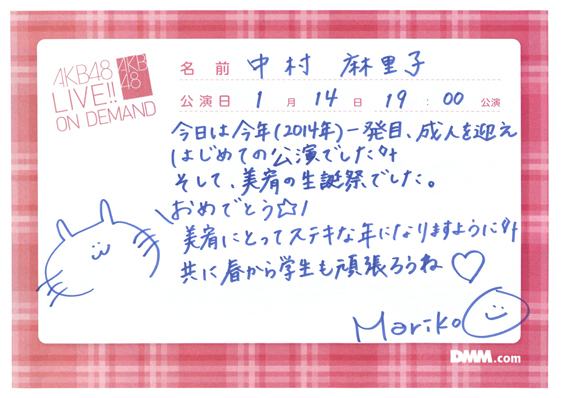 AKB48
LIVE!!
ON DEMAND
AKB
48
名前 中村 麻里子
公演日 1月14日 19:00 公演
今日は今年(2014年)一発目、成人を迎え
はじめての公演でした
そして、美宥の生誕祭でした。
おめでとう☆
美宥にとってステキな年になりますように
共に春から学生も頑張ろうね♡
Mariko
DMM.com